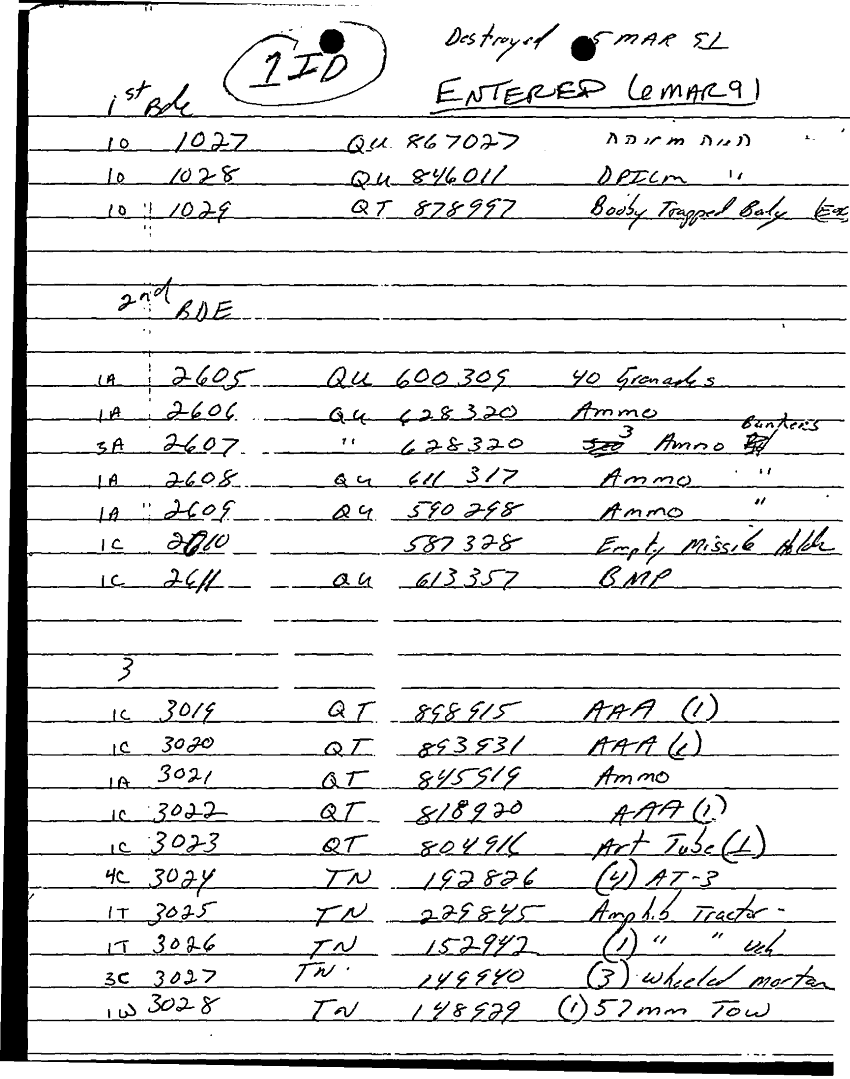 1ID
Destroyed 5 MAR 91
ENTERED 6 MAR 91
1st Bde
10 1027 QU 867027
10 1028 QU 846011 DPICM "
10 " 1029 QT 878997 Booby Trapped Body
2nd BDE
1A 2605 QU 600309 40 Grenades
1A 2606 QU 628320 Ammo
3A 2607 " 628320 3 Ammo Bunkers
1A 2608 QU 611 317 Ammo "
1A " 2609 QU 590298 Ammo "
1C 2610 587328 Empty Missile
1C 2611 QU 613357 BMP
3
1C 3019 QT 898915 AAA (1)
1C 3020 QT 893931 AAA (1)
1A 3021 QT 845919 Ammo
1C 3022 QT 818920 AAA (1)
1C 3023 QT 804916 Art Tube (1)
4C 3024 TN 192826 (4) AT-3
1T 3025 TN 229845 Amphib Tractor -
1T 3026 TN 152942 (1) " " veh
3C 3027 TN. 149940 (3) wheeled mortar
1W 3028 TN 148929 (1) 57mm Tow